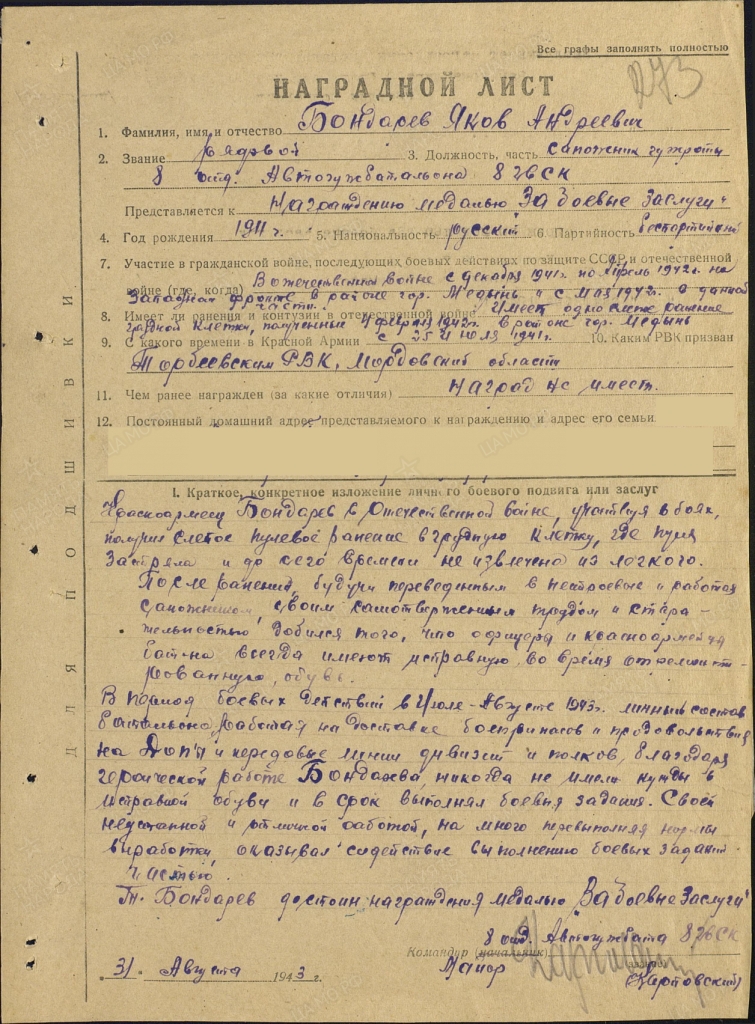 Все графы заполнять полностью
273
НАГРАДНОЙ ЛИСТ
1. Фамилия, имя и отчество Бондарев Яков Андреевич
2. Звание рядовой 3. Должность, часть сапожник
8 отд. Автогужбатальона 8 гвСК
Представляется к награждению медалью "За боевые заслуги"
4. Год рождения 1911 г. 5. Национальность русский 6. Партийность беспартийный
7. Участие в гражданской войне, последующих боевых действиях по защите СССР и отечественной
войне (где, когда) В отечественной войне с декабря 1941г. по апрель 1942г. на
Западном фронте в районе гор. Медынь и с мая 1942г. в данной
части.
8. Имеет ли ранения и контузии в отечественной войне Имеет одно слепое ранение
грудной клетки, полученный 4 февраля 1942г. в районе гор. Медынь
9. С какого времени в Красной Армии с 25 июля 1941г. 10. Каким РВК призван
Торбеевским РВК, Мордовской области
11. Чем ранее награжден (за какие отличия) Наград не имеет.
12. Постоянный домашний адрес представляемого к награждению и адрес его семьи
ДЛЯ ПОДШИВКИ
I. Краткое, конкретное изложение личного боевого подвига или заслуг
Красноармеец Бондарев в Отечественной войне, участвуя в боях,
получил слепое пулевое ранение в грудную клетку, где пуля
застряла и до сего времени не извлечена из легкого.
После ранения, будучи переведенным в нестроевые и работая
сапожником, своим самоотверженным трудом и стара-
тельностью добился того, что офицера и красноармейцы
бат-на всегда имеют исправную, во время отремонти-
рованную, обувь.
В период боевых действий в Июле-Августе 1943г. личный состав
батальона, работая на доставке боеприпасов и продовольствия
на ДОПы и передовые линии дивизий и полков, благодаря
героической работе Бондарева, никогда не имели нужды в
исправной обуви и в срок выполнял боевые задания. Своей
неустанной и отличной работой, на много перевыполняя нормы
выработки, оказывал содействие выполнению боевых заданий
частью.
Т. Бондарев достоин награждения медалью "За боевые заслуги"
8 отд. Автогужбата 8 гвСК
Командир (начальник)
Майор (Карповский)
31 Августа 1943 г.